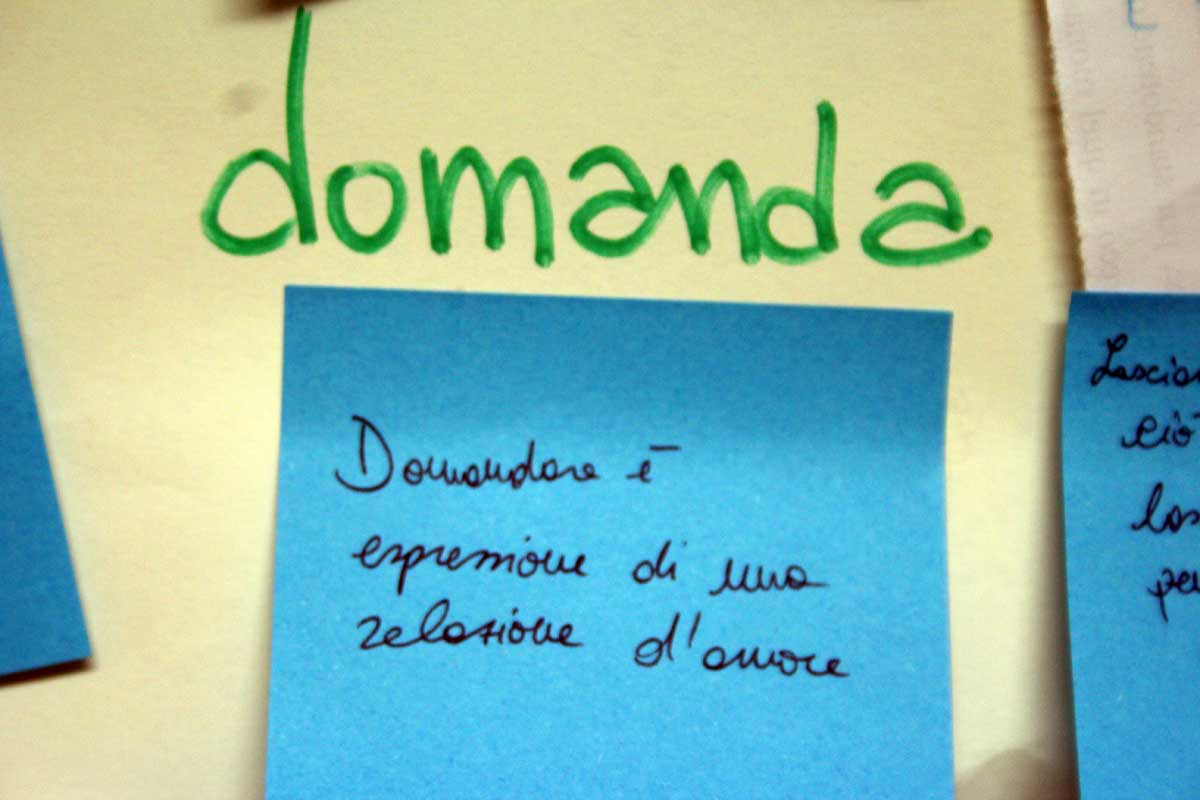 domanda
Domandare è
espressione di una
relazione d'amore
Lascia
ciò